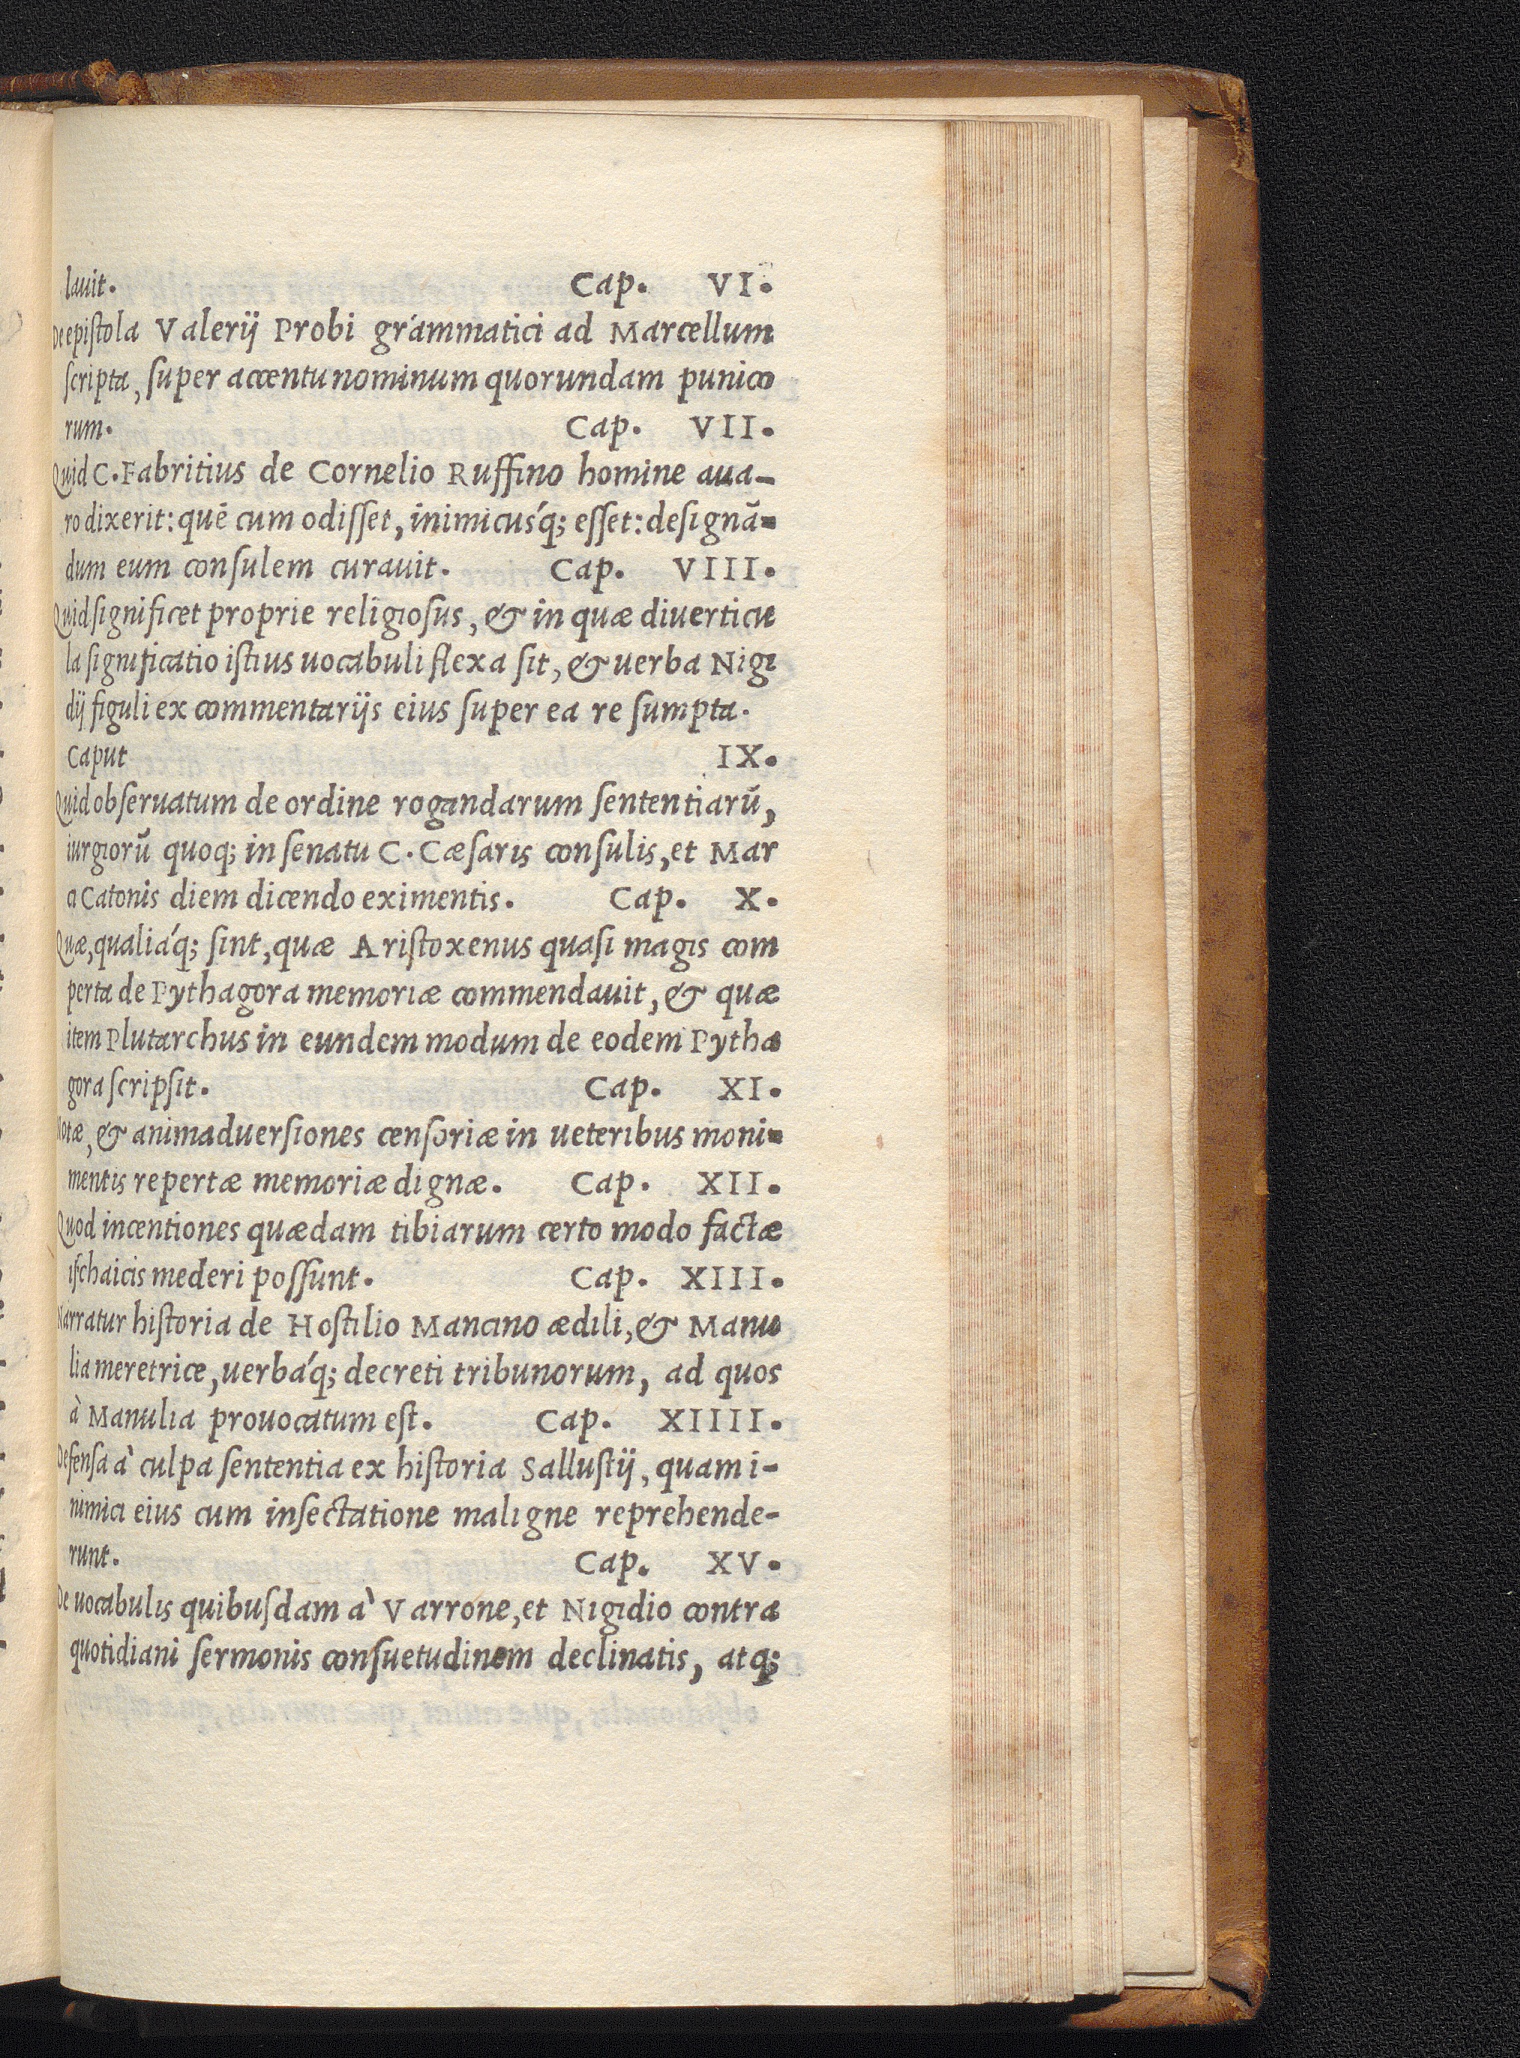 lauit. Cap. VI.
De epistola Valerij Probi grámmatici ad Marcellum
scripta, super accentu nominum quorundam punico
rum. Cap. VII.
Quid C. Fabritius de Cornelio Ruffino homine aua-
ro dixerit: quē cum odisset, inimicusq́; esset: designā-
dum eum consulem curauit. Cap. VIII.
Quid significet proprie religiosus, & in quæ diuerticu
la significatio istius uocabuli flexa sit, & uerba Nigi
dij figuli ex commentarijs eius super ea re sumpta.
Caput IX.
Quid obseruatum de ordine rogandarum sententiarū,
iurgiorū quoq; in senatu C. Cæsaris consulis, et Mar
ci Catonis diem dicendo eximentis. Cap. X.
Quæ, qualiáq; sint, quæ Aristoxenus quasi magis com
perta de Pythagora memoriæ commendauit, & quæ
item Plutarchus in eundem modum de eodem Pytha
gora scripsit. Cap. XI.
Notæ, & animaduersiones censoriæ in ueteribus moni-
mentis repertæ memoriæ dignæ. Cap. XII.
Quod incentiones quædam tibiarum certo modo factæ
ischaicis mederi possunt. Cap. XIII.
Narratur historia de Hostilio Mancino ædili, & Manu
lia meretrice, uerbáq; decreti tribunorum, ad quos
à Manulia prouocatum est. Cap. XIIII.
Defensa à culpa sententia ex historia Sallustij, quam i-
nimici eius cum insectatione maligne reprehende-
runt. Cap. XV.
De uocabulis quibusdam à Varrone, et Nigidio contra
quotidiani sermonis consuetudinem declinatis, atq;